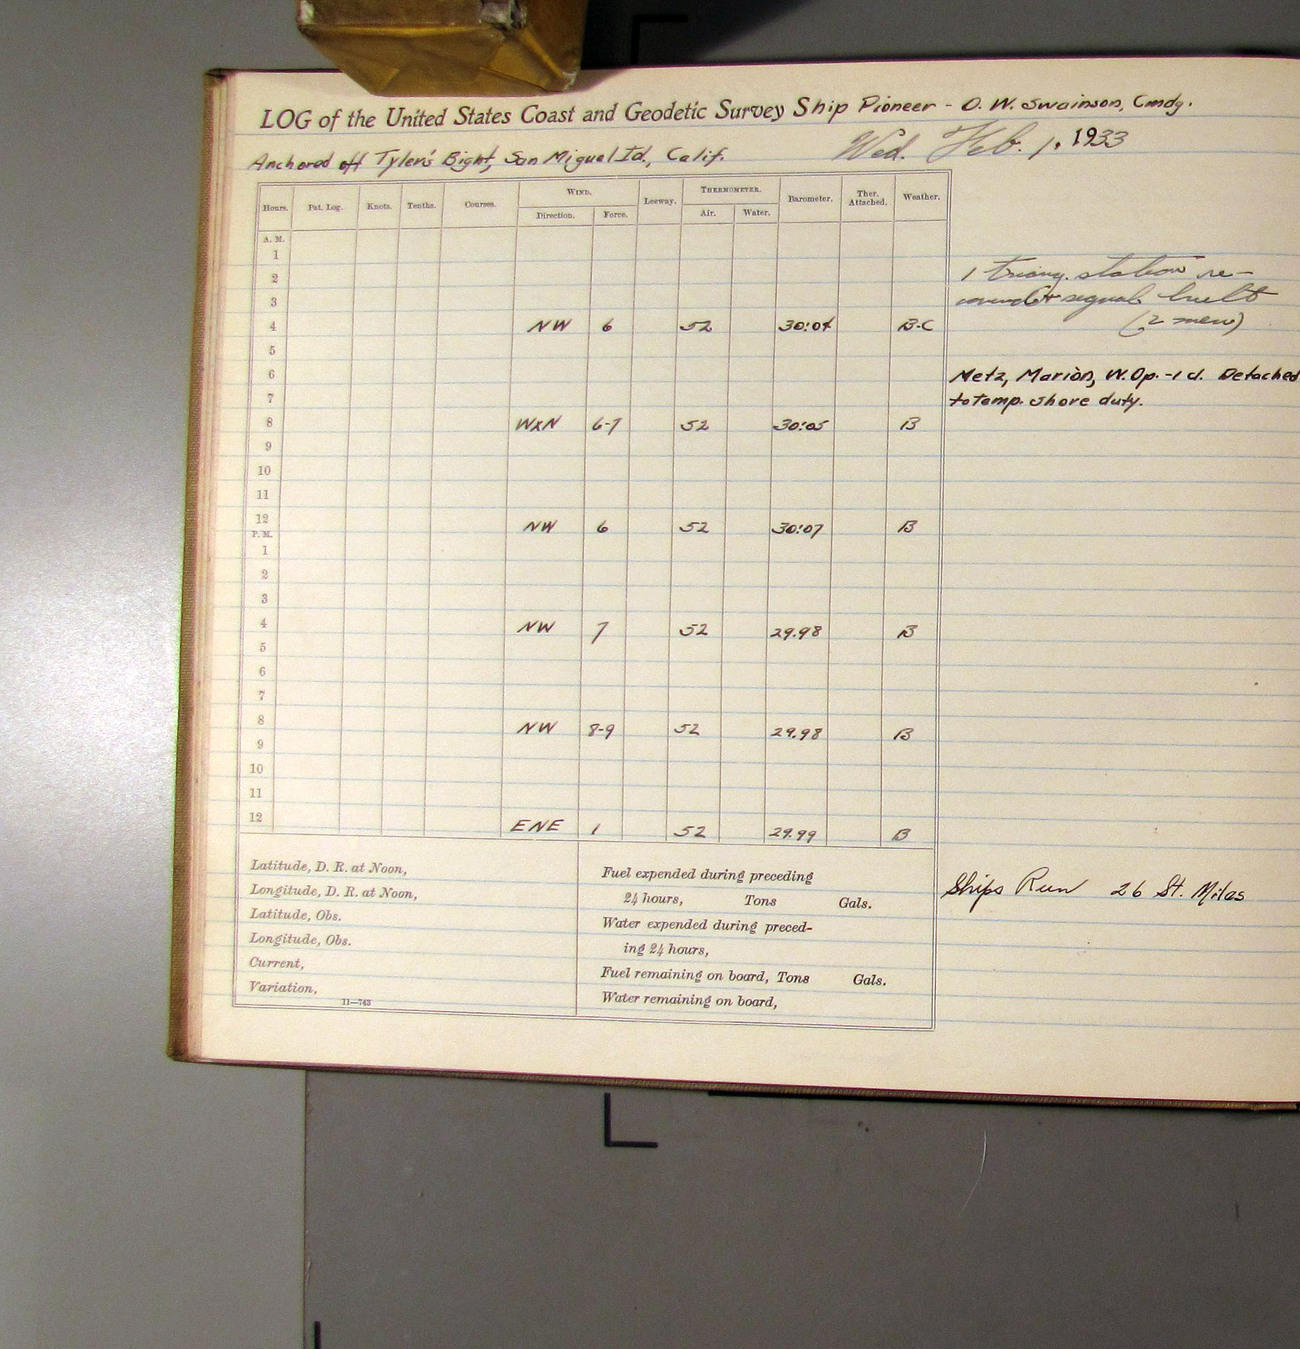 LOG of the United States Coast and Geodetic Survey Ship Pioneer - O. W. Swainson, Cmdg.
Anchored off Tyler's Bight, San Miguel Id., Calif. Wed. Feb. 1, 1933
Hours. Pat. Log. Knots. Tenths. Courses. WIND. Leeway. THERMOMETER. Barometer. Ther. Attached. Weather.
Direction. Force. Air. Water.
A. M.
1
2
3
4 NW 6 52 30:04 B-C
5
6
7
8 WxN 6-7 52 30:05 B
9
10
11
12 NW 6 52 30:07 B
P. M.
1
2
3
4 NW 7 52 29.98 B
5
6
7
8 NW 8-9 52 29.98 B
9
10
11
12 ENE 1 52 29.99 B
1 triang. station re-
covered & signal built
(2 men)
Metz, Marion, W.Op. -1 cl. Detached
to temp. shore duty.
Latitude, D. R. at Noon,
Longitude, D. R. at Noon,
Latitude, Obs.
Longitude, Obs.
Current,
Variation,
11—743
Fuel expended during preceding
24 hours, Tons Gals.
Water expended during preced-
ing 24 hours,
Fuel remaining on board, Tons Gals.
Water remaining on board,
Ships Run 26 St. Miles